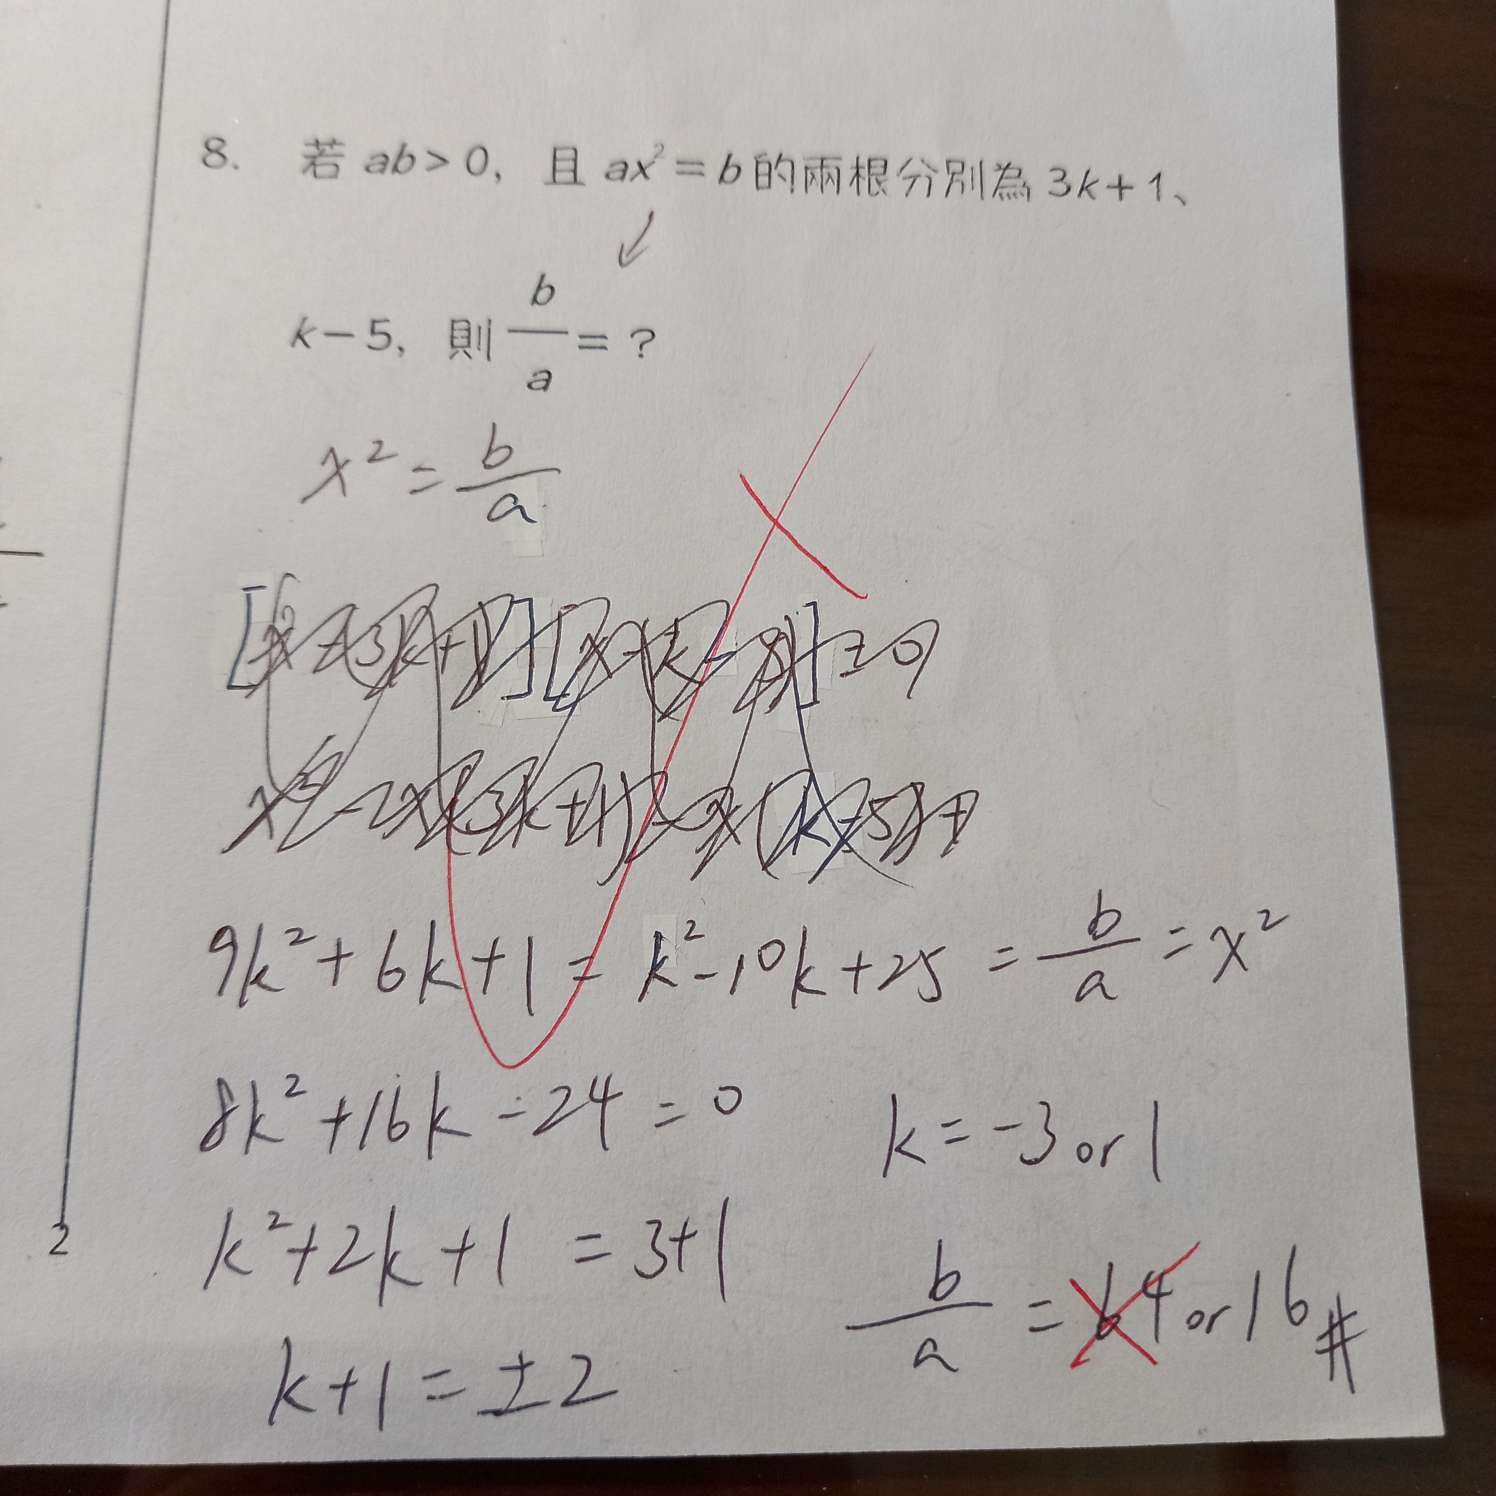 8. 若 ab>0, 且 ax²=b 的兩根分別為 3k+1、
k-5, 則 b/a = ?
x² = b/a
9k²+6k+1 = k²-10k+25 = b/a = x²
8k²+16k-24=0
k=-3 or 1
k²+2k+1 = 3+1
b/a = 64 or 16 #
k+1=±2
2